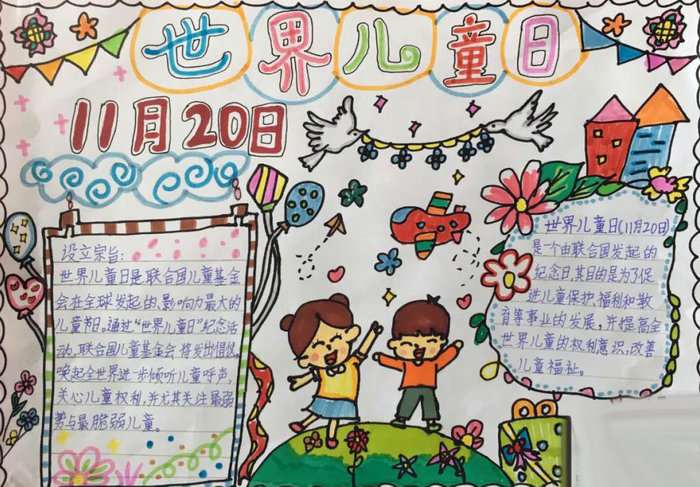 世界儿童日
11月20日
设立宗旨：
世界儿童日是联合国儿童基金
会在全球发起的、影响力最大的
儿童节日。通过“世界儿童日”纪念活
动，联合国儿童基金会将发出倡议，
唤起全世界进一步倾听儿童呼声，
关心儿童权利，并尤其关注最弱
势与最脆弱儿童。
世界儿童日(11月20日)
是一个由联合国发起的
纪念日，其目的是为了促
进儿童保护、福利和教
育等事业的发展，并提高全
世界儿童的权利意识，改善
儿童福祉。